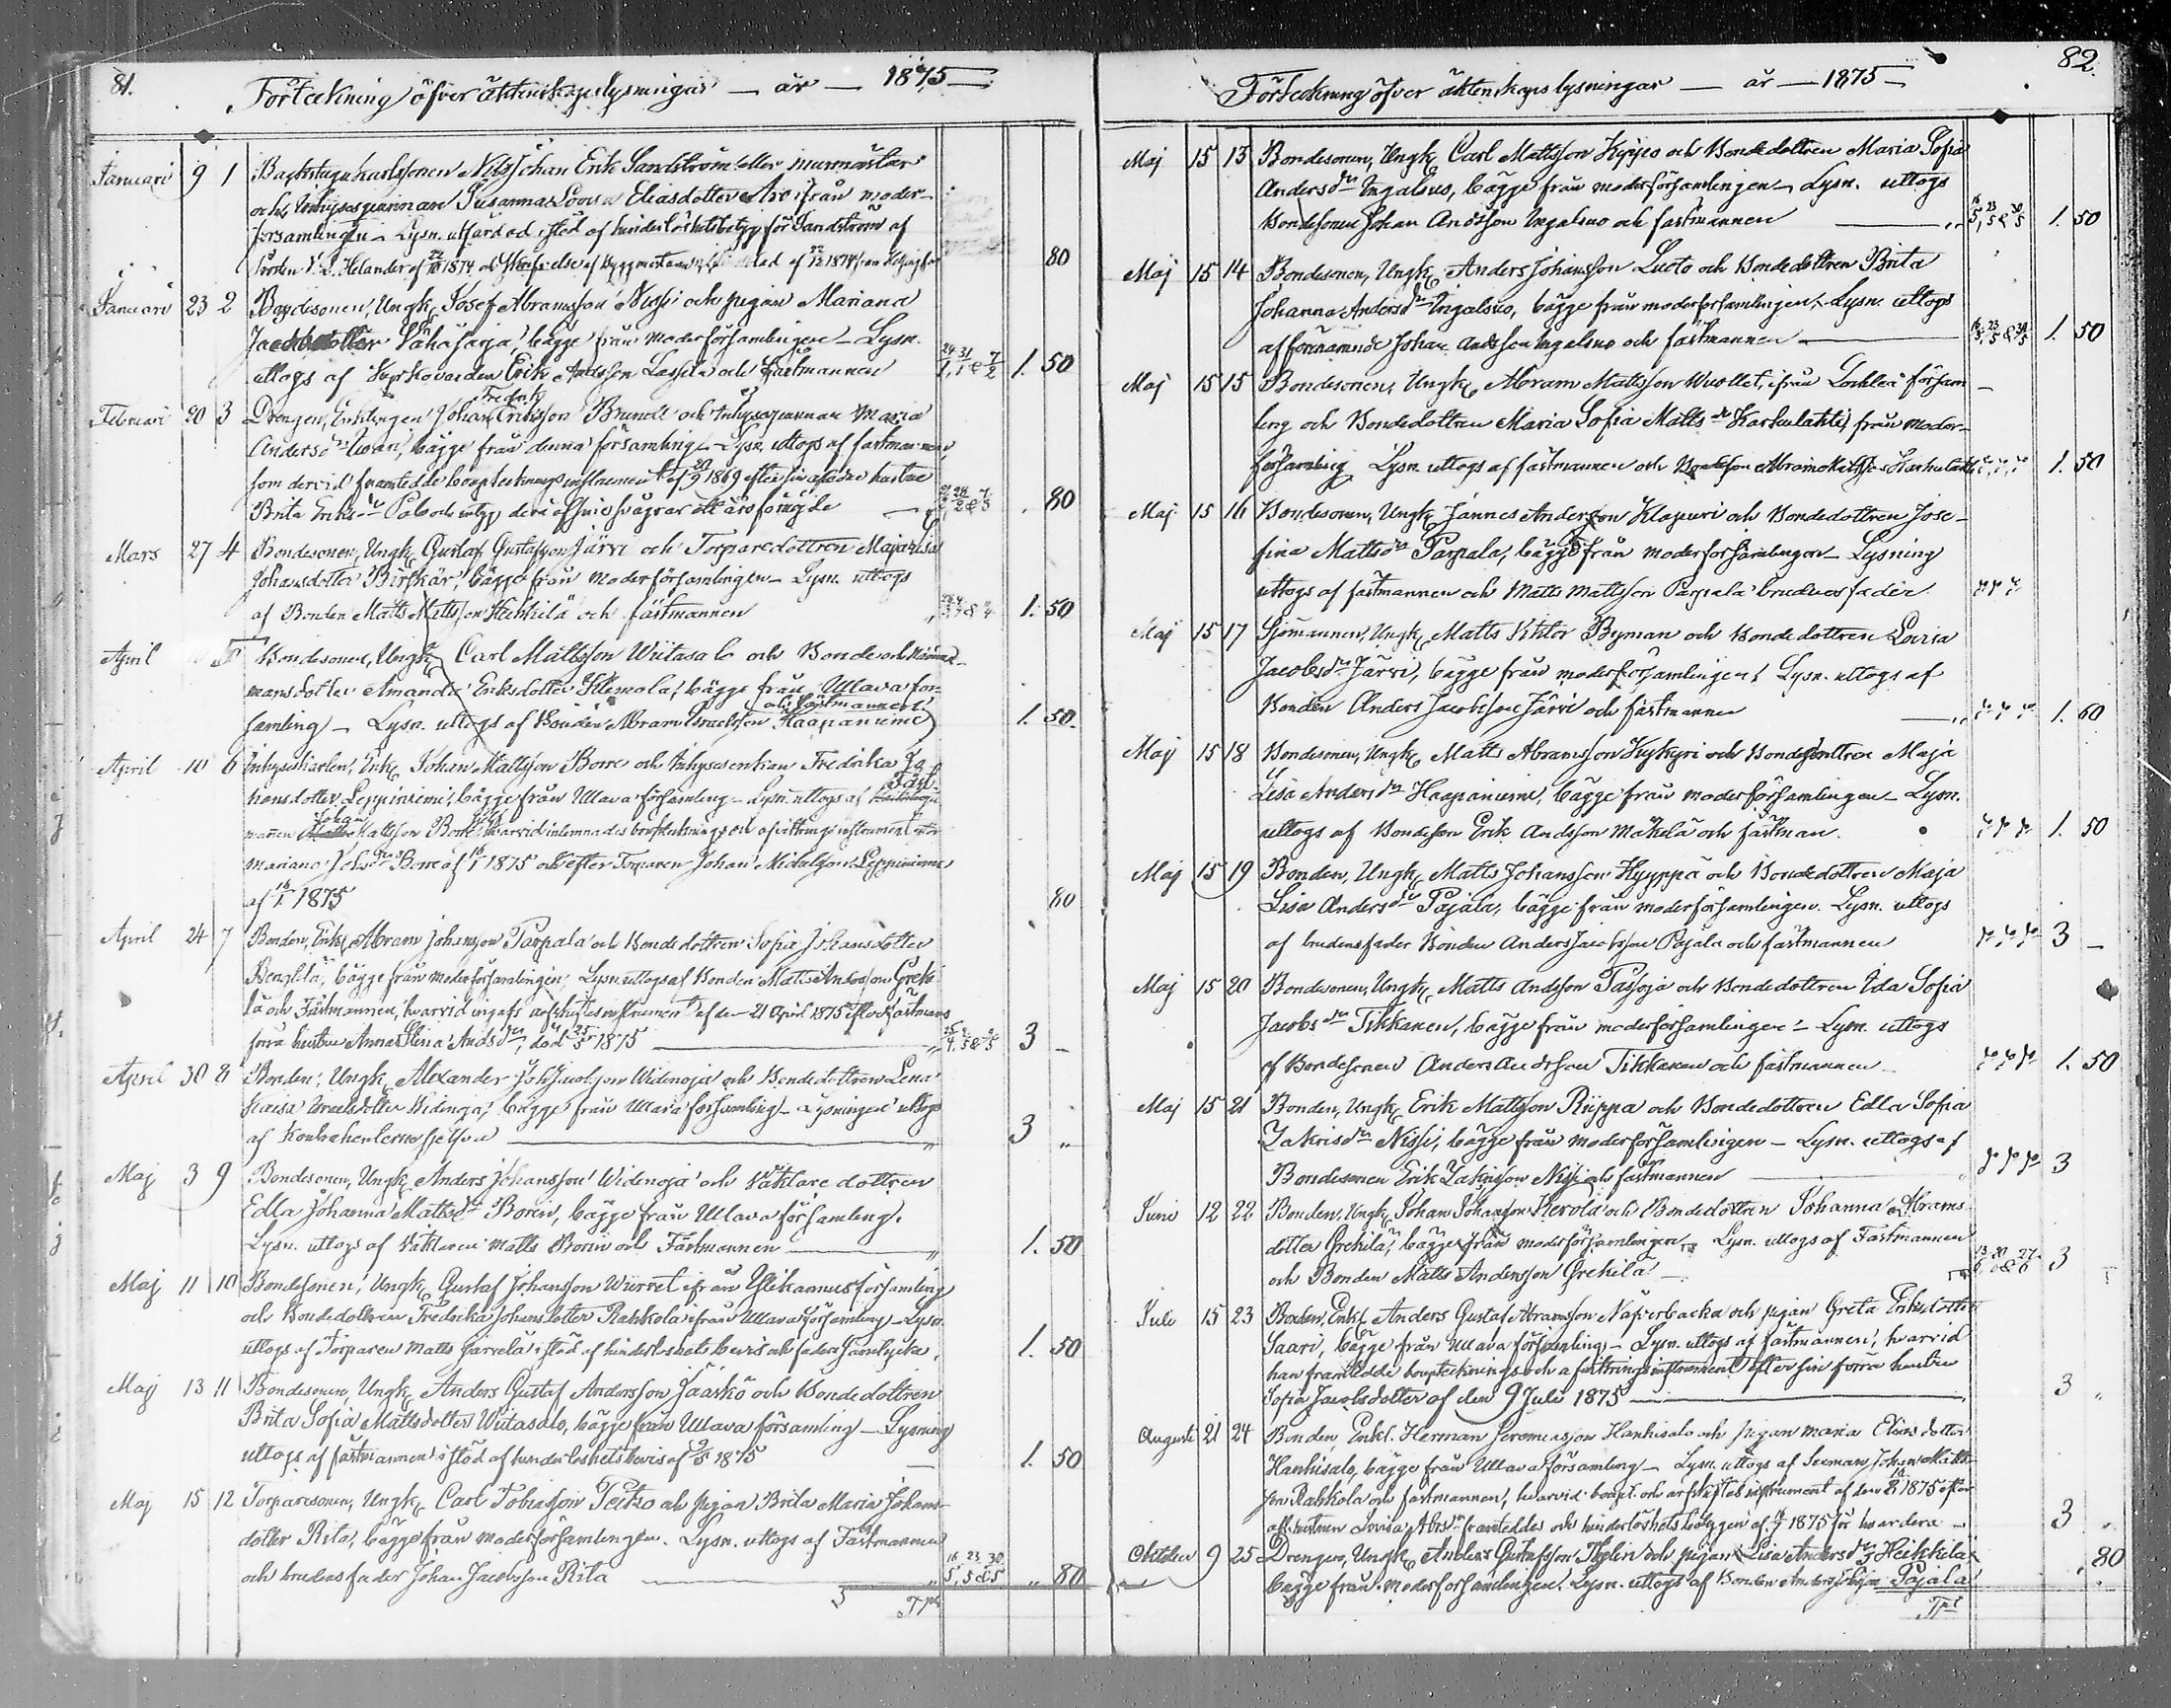 81.
Förteckning öfver äktenskapslysningar — år — 1875 —
Januari 9 1 Backstugukarlssonen Nils Johan Erik Sandström eller murmästar
och Inhysespigan Susanna Lovisa Eliasdotter ifrån moder-
församlingen — Lysn. utfärdad i stöd af hinderlöshetsbetyg för Sandström af
Helander af 1874 och af 1874 80
Januari 23 2 Bondesonen, Ungk. Josef Abramsson Nissi och pigan Mariana
Jacobsdotter Vähäsarja, bägge från moderförsamlingen — Lysn.
uttogs af Kyrkovärden Erik Andsson Lassila och fästmannen 24/1, 31/1 & 7/2 1. 50
Februari 20 3 Drengen, Enklingen Johan Fredrik Eriksson Brundt och Inhysespigan Maria
Andersdr bägge från denna församling — Lysn. uttogs af fästmannen,
som dervid framtedde bouptecknings instrument af 1869 efter sin aflidne hustru
Brita Eriksdr och intyg deri af sine svågrar 80
Mars 27 4 Bondesonen, Ungk. Gustaf Gustafsson Järvi och Torparedottren Maja Lisa
Johansdotter Birskär, bägge från moderförsamlingen — Lysn. uttogs
af Bonden Matts Mattsson Heikkilä och fästmannen 1. 50
April 5 Bondesonen, Ungk. Carl Mattsson Wiitasalo och Bonde och Nämnde-
mansdotter Amanda Eriksdotter Klemola, bägge från Ullava för-
samling — Lysn. uttogs af Bonden Abram Haapaniemi och fästmannen 1. 50.
April 10 6 Inhyseskarlen, Enkl. Johan Mattsson Borre och Inhysesenkan Fredrika Jo-
hansdotter Leppiniemi, bägge från Ullava församling — Lysn. uttogs af Fäst-
mannen Johan Mattsson Borre, hvarvid inlemnades boupptecknings och afvittrings instrument efter
Mariana Johsdr Borre af 1875 och efter Torparen Johan Leppiniemi
af 1875 80
April 24 7 Bonden, Enkl. Abram Johansson Parpala och Bondedottren Sofia Johansdotter
bägge från moderförsamlingen; Lysn. uttogs af Bonden Matts Andersson Greki-
lä och Fästmannen, hvarvid ingafs arfskiftesinstrument af den 21 April 1875 efter fästmans
förra hustru Anna Stina Andsdr, död 1875 3 —
April 30 8 Bonden, Ungk. Alexander Widenoja och Bondedottren Lena
Kaisa Israelsdotter Widenoja, bägge från Ullava församling — Lysningen uttogs
af Kontrahenterne sjelfva 3 „
Maj 3 9 Bondesonen, Ungk. Anders Johansson Widenoja och Väktare dottren
Edla Johanna Mattsdr Borin, bägge från Ullava församling.
Lysn. uttogs af Väktaren Matts Borin och Fästmannen 1. 50
Maj 11 10 Bondesonen, Ungk. Gustaf Johansson Wiirret ifrån Ylikannus församling
och Bondedottren Fredrika Johansdotter Rahkola ifrån Ullava församling — Lysn.
uttogs af Torparen Matts Jarvelä i stöd af hinderlöshets bevis och faders samtycke. 1. 50
Maj 13 11 Bondesonen, Ungk. Anders Gustaf Andersson Jääskö och Bondedottren
Brita Sofia Mattsdotter Wiitasalo, bägge från Ullava församling — Lysning
uttogs af fästmannen i stöd af hinderlöshetsbevis af 9/5 1875 1. 50
Maj 15 12 Torparesonen, Ungk. Carl Tobiasson Peitso och pigan Brita Maria Johans-
dotter Rita, bägge från moderförsamlingen. Lysn. uttogs af Fästmannen
och brudens fader Johan Jacobsson Rita 16/5, 23/5 & 30/5 „ 80
Tpt
82.
Förteckning öfver äktenskapslysningar — år — 1875 —
Maj 15 13 Bondesonen, Ungk. Carl Mattsson Kippo och Bondedottren Maria Sofia
Andersdr Ingalsuo, bägge från moderförsamlingen — Lysn. uttogs
Bondesonen Johan Andsson Ingalsuo och fästmannen 16/5, 23/5 & 30/5 1. 50
Maj 15 14 Bondesonen, Ungk. Anders Johansson Luoto och Bondedottren Brita
Johanna Andersdr Ingalsuo, bägge från moderförsamlingen. Lysn. uttogs
af förenämnde Johan Andsson Ingalsuo och fästmannen 16/5, 23/5 & 30/5 1. 50
Maj 15 15 Bondesonen, Ungk. Abram Mattsson Wuollet, ifrån Lochteå försam-
ling och Bondedottren Maria Sofia Mattsdr Karhulahti, från moder-
församling Lysn. uttogs af fästmannen och Bondeson Karhulahti 1. 50
Maj 15 16 Bondesonen, Ungk. Jannes Andersson Klapuri och Bondedottren Jose-
fina Mattsdr Parpala, bägge från moderförsamlingen — Lysning
uttogs af fästmannen och Matts Mattsson Parpala brudens fader
Maj 15 17 Sjömannen, Ungk. Matts Viktor Byman och Bondedottren Lovisa
Jacobsdr Järvi, bägge från moderförsamlingen. Lysn. uttogs af
Bonden Anders Jacobsson Järvi och fästmannen 1. 60
Maj 15 18 Bondesonen, Ungk. Matts Abramsson Kykyri och Bondedottren Maja
Lisa Andersdr Haapaniemi, bägge från moderförsamlingen — Lysn.
uttogs af Bondeson Erik Andsson Mäkelä och fästman. 1. 50
Maj 15 19 Bonden, Ungk. Matts Johansson Hyyppä och Bondedottren Maja
Lisa Andersdr Pajala, bägge från moderförsamlingen. Lysn. uttogs
af brudens fader Bonden Anders Jacobsson Pajala och fästmannen 3 —
Maj 15 20 Bondesonen, Ungk. Matts Andsson Passoja och Bondedottren Ida Sofia
Jacobsdr Tikkanen, bägge från moderförsamlingen — Lysn. uttogs
af Bondesonen Anders Andsson Tikkanen och fästmannen 1. 50
Maj 15 21 Bonden, Ungk. Erik Mattsson Riippa och Bondedottren Edla Sofia
Zakrisdr Nissi, bägge från moderförsamlingen — Lysn. uttogs af
Bondesonen Erik Zakrisson Nissi och fästmannen 3
Juni 12 22 Bonden, Ungk. Johan Johansson Kerola och Bondedottren Johanna Abrams-
dotter Grekilä, bägge från moderförsamlingen. Lysn. uttogs af Fästmannen
och Bonden Matts Andersson Grekilä 13/6, 20/6 & 27/6 3
Juli 15 23 Bonden, Enkl. Anders Gustaf Abramsson Näverbacka och pigan Greta Eriksdotter
Saari, bägge från Ullava församling — Lysn. uttogs af fästmannen, hvarvid
han framtedde bouptecknings och afvittringsinstrument efter sin förra hustru
Sofia Jacobsdotter af den 9 Juli 1875 3 „
Augusti 21 24 Bonden, Enkl. Herman Jeremiasson Hanhisalo och pigan Maria Eliasdotter
Hanhisalo, bägge från Ullava församling — Lysn. uttogs af Johan Matts-
son Rahkola och fästmannen, hvarvid boupt. och arfskiftes instrument af den 1875 efter
afl. hustrun Lovisa Abrsdr framteddes och hinderlöshetsbetygen af 1875 för hvardera 3 „
Oktober 9 25 Drengen, Ungk. Anders Gustafsson Thylin och pigan Lisa Andersdr Heikkilä
bägge från moderförsamlingen. Lysn. uttogs af Bonden Anders Pajala 80
Tpt